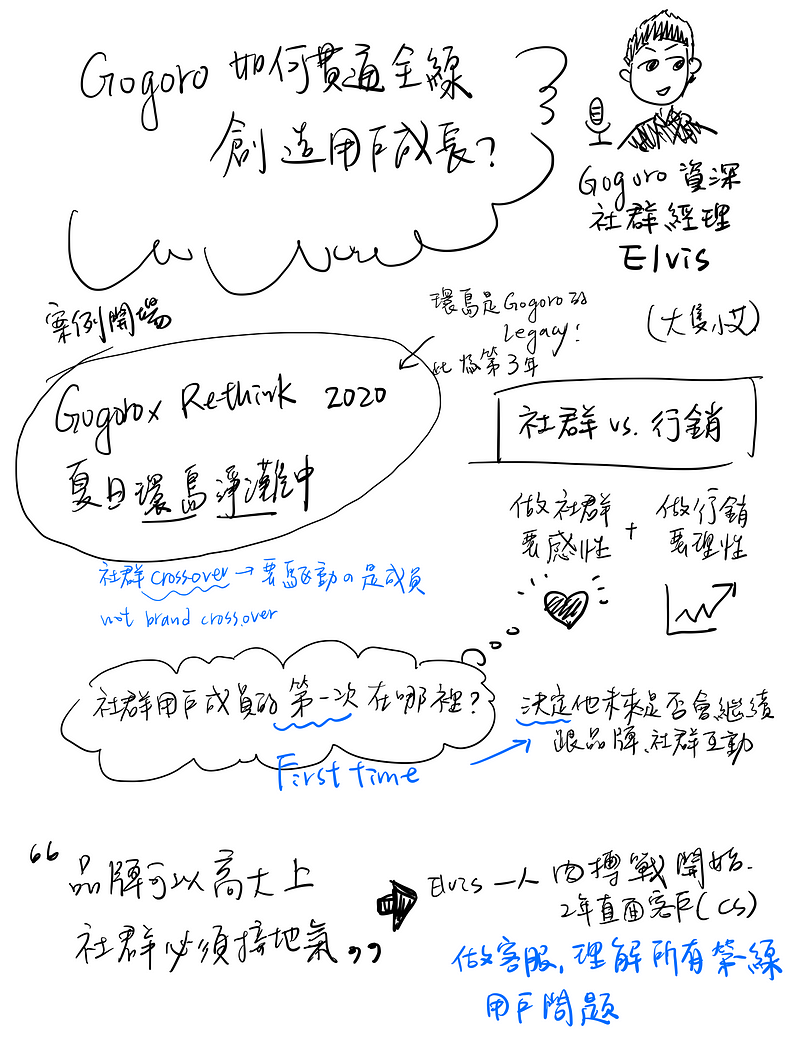 Gogoro 如何貫通全線
創造用戶成長?
Gogoro 資深
社群經理
Elvis
(大隻小艾)
案例開場
環島是Gogoro的
Legacy!
此為第3年
Gogoro x Rethink 2020
夏日環島淨灘中
社群 crossover → 要驅動の是成員
not brand crossover
社群 vs. 行銷
做社群
要感性
+
做行銷
要理性
社群用戶成員的第一次在哪裡?
First time
決定他未來是否會繼續
跟品牌、社群互動
“品牌可以高大上
社群必須接地氣”
Elvis 一人肉搏戰開始.
2年直面客戶(CS)
做客服, 理解所有第一線
用戶問題